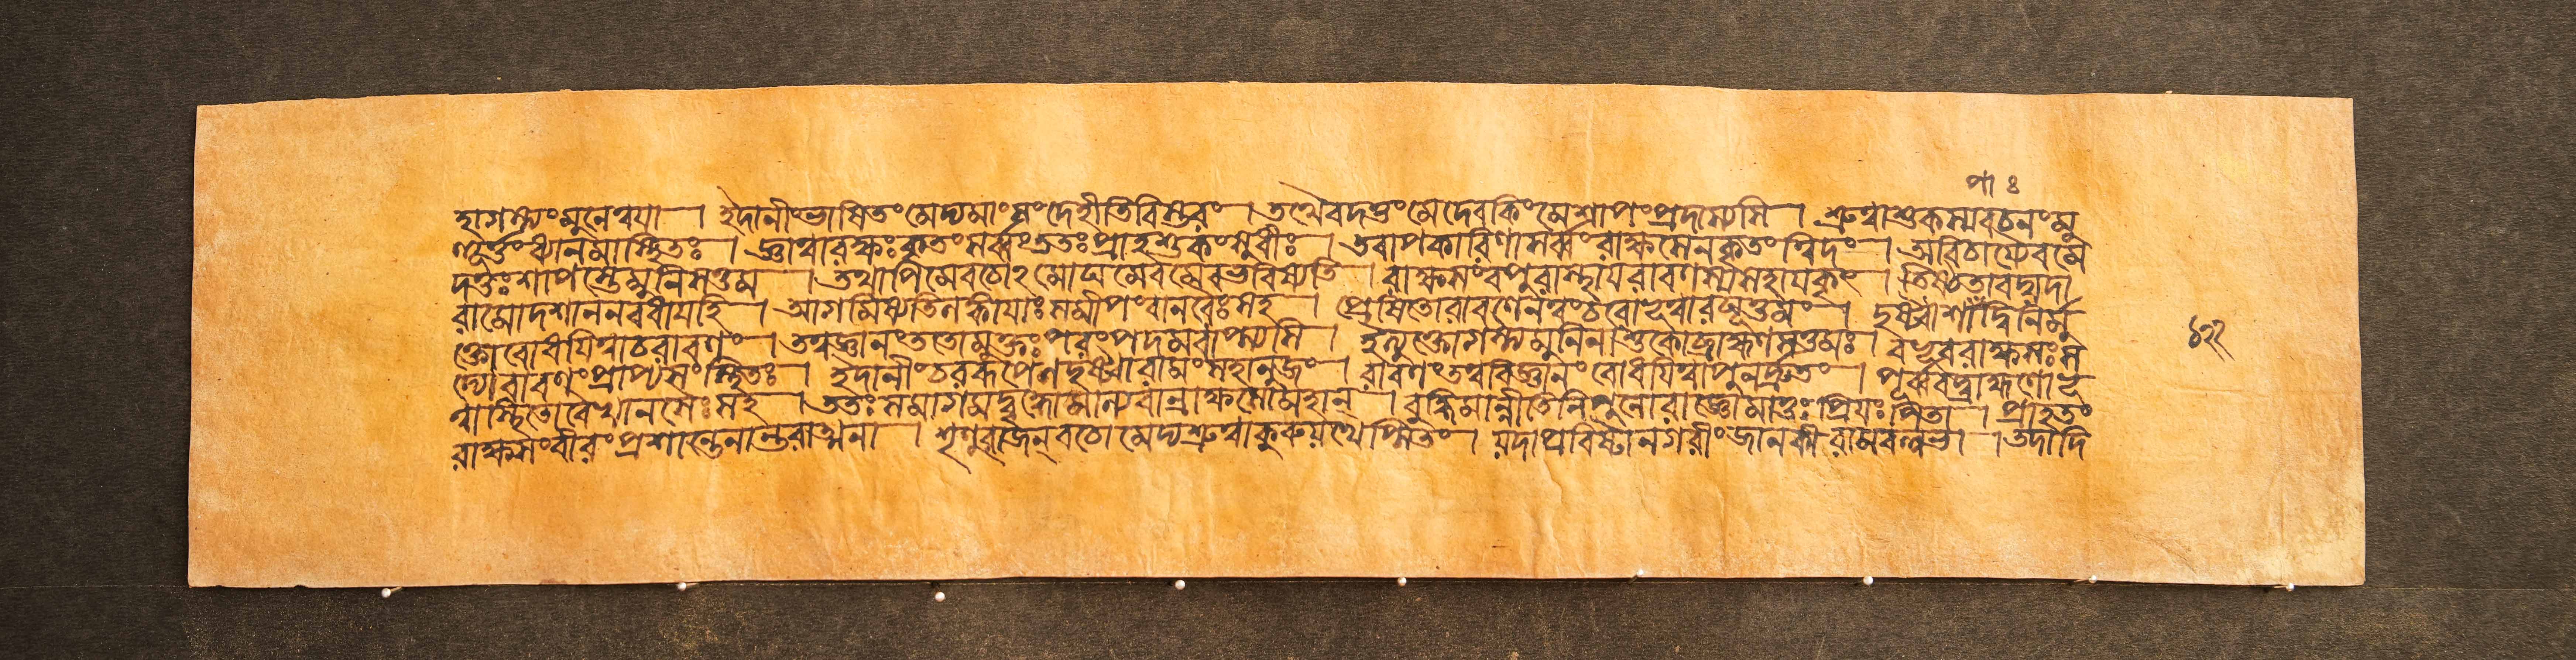 হাগস্ত্যংমুনেত্বয়া । ইদানীংভাষিতংমেদ্যমাংসংদেহীতিবিস্তরং । তথৈবদত্তংমেদেবকিংমেশাপংপ্রদাস্যসি । শ্রুত্বাশুকস্যবচনংমু
পা ঃ
হূর্ত্তংধ্যানমাস্থিতঃ । জ্ঞাত্বারক্ষঃকৃতংসর্ব্বংততঃপ্রাহশুকংসুধীঃ । তবাপকারিণাসর্ব্বংরাক্ষসেনকৃতংত্বিদং । অবিচার্য্যৈবমে
দত্তঃশাপস্তেমুনিসত্তম । তথাপিমেবচোঽমোঘমেবমেবভবিষ্যতি । রাক্ষসংবপুরাস্থায়রাবণস্যসহায়কৃৎ । তিষ্ঠতাবদ্যদা
রামোদশাননবধায়হি । আগমিষ্যতিলঙ্কায়াঃসমীপংবানরৈঃসহ । প্রেষিতোরাবণেনত্বংচরোভূত্বারঘূত্তমং । দৃষ্ট্বাশাপাদ্বিনির্মু
ক্তোবোধয়িত্বাচরাবণং । তত্বজ্ঞানংততোমুক্তঃপরংপদমবাপ্স্যসি । ইত্যুক্তোগস্ত্যমুনিনাশুকোব্রাহ্মণসত্তমঃ । বভূবরাক্ষসঃস
দ্যোরাবণংপ্রাপ্যসংস্থিতঃ । ইদানীংচররূপেণদৃষ্ট্বারামংসহানুজং । রাবণংতত্ববিজ্ঞানংবোধয়িত্বাপুনর্দ্রুতং । পূর্ব্ববদ্ব্রাহ্মণোভূ
ত্বাস্থিতোবৈখানসৈঃসহ । ততঃসমাগমদ্বৃদ্ধোমাল্যবান্রাক্ষসোমহান্ । বুদ্ধিমান্নীতিনিপুণোরাজ্ঞোমাতুঃপ্রিয়ঃপিতা । প্রাহতং
রাক্ষসংবীরংপ্রশান্তেনান্তরাত্মনা । শৃণুরাজন্বচোমেদ্যশ্রুত্বাকুরুযথেপ্সিতং । যদাপ্রবিষ্টানগরীংজানকীরামবল্লভা । তদাদি